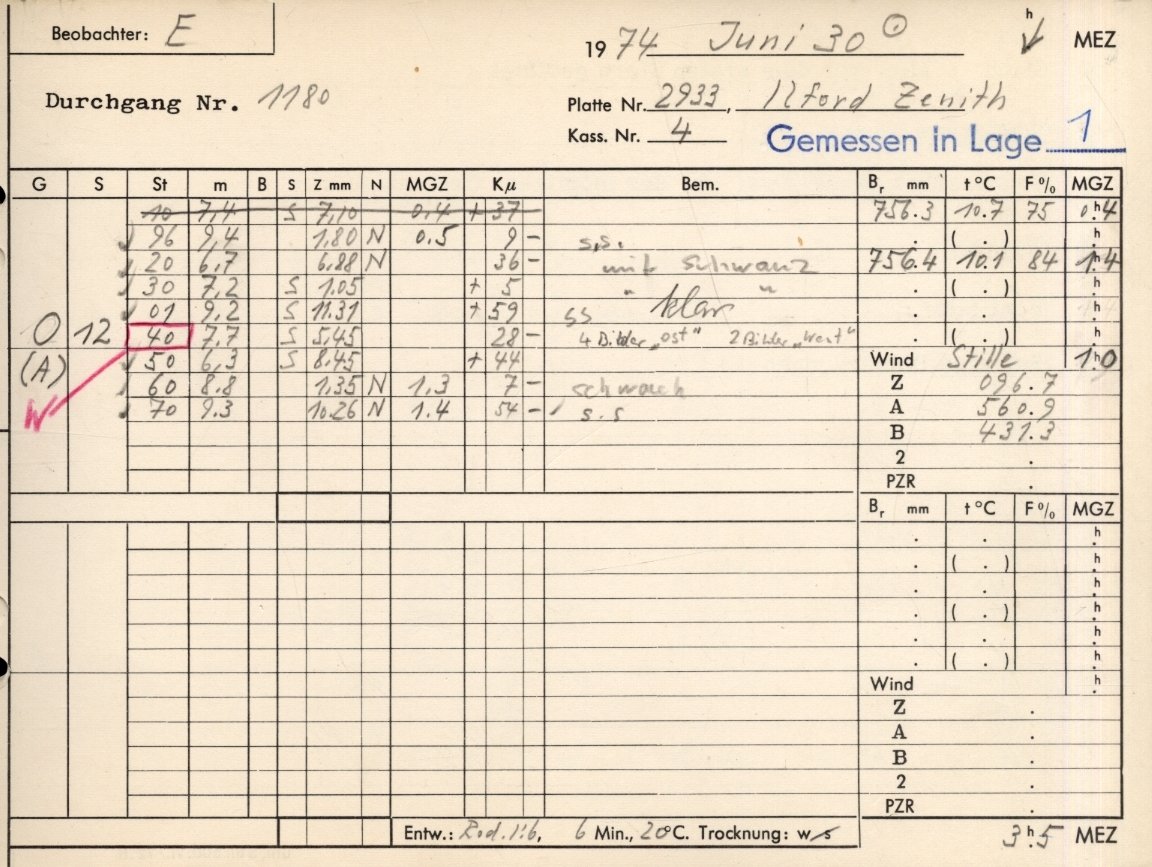 Beobachter: E
1974 Juni 30 ʰ MEZ
Durchgang Nr. 1180
Platte Nr. 2933, Ilford Zenith
Kass. Nr. 4 Gemessen in Lage 1
G S St m B S Z mm N MGZ Kμ Bem. Bᵣ mm t °C F % MGZ
10 7,4 S 7,10 0,4 + 37 756.3 10.7 75 0ʰ.4
96 9,4 1,80 N 0.5 9 - s.s. . ( . ) ʰ.
20 6,7 6,88 N 36 - mit Schwanz 756.4 10.1 84 1ʰ.4
30 7,2 S 1.05 + 5 " klar " . ( . ) ʰ.
01 9,2 S 11.31 + 59 ss . . ʰ.
O 12 40 7,7 S 5,45 28 - 4 Bilder "ost" 2 Bilder "West" . ( . ) ʰ.
(A) 50 6,3 S 8.45 + 44 Wind Stille 1ʰ.0
W 60 8.8 1.35 N 1.3 7 - schwach Z 096.7
70 9.3 10.26 N 1.4 54 - s.s A 560.9
B 431.3
2 .
PZR .
Bᵣ mm t °C F % MGZ
. . ʰ.
. ( . ) ʰ.
. . ʰ.
. ( . ) ʰ.
. . ʰ.
. ( . ) ʰ.
Wind ʰ.
Z .
A .
B .
2 .
PZR .
Entw.: Rod. 1:6, 6 Min., 20°C. Trocknung: w s 3ʰ.5 MEZ